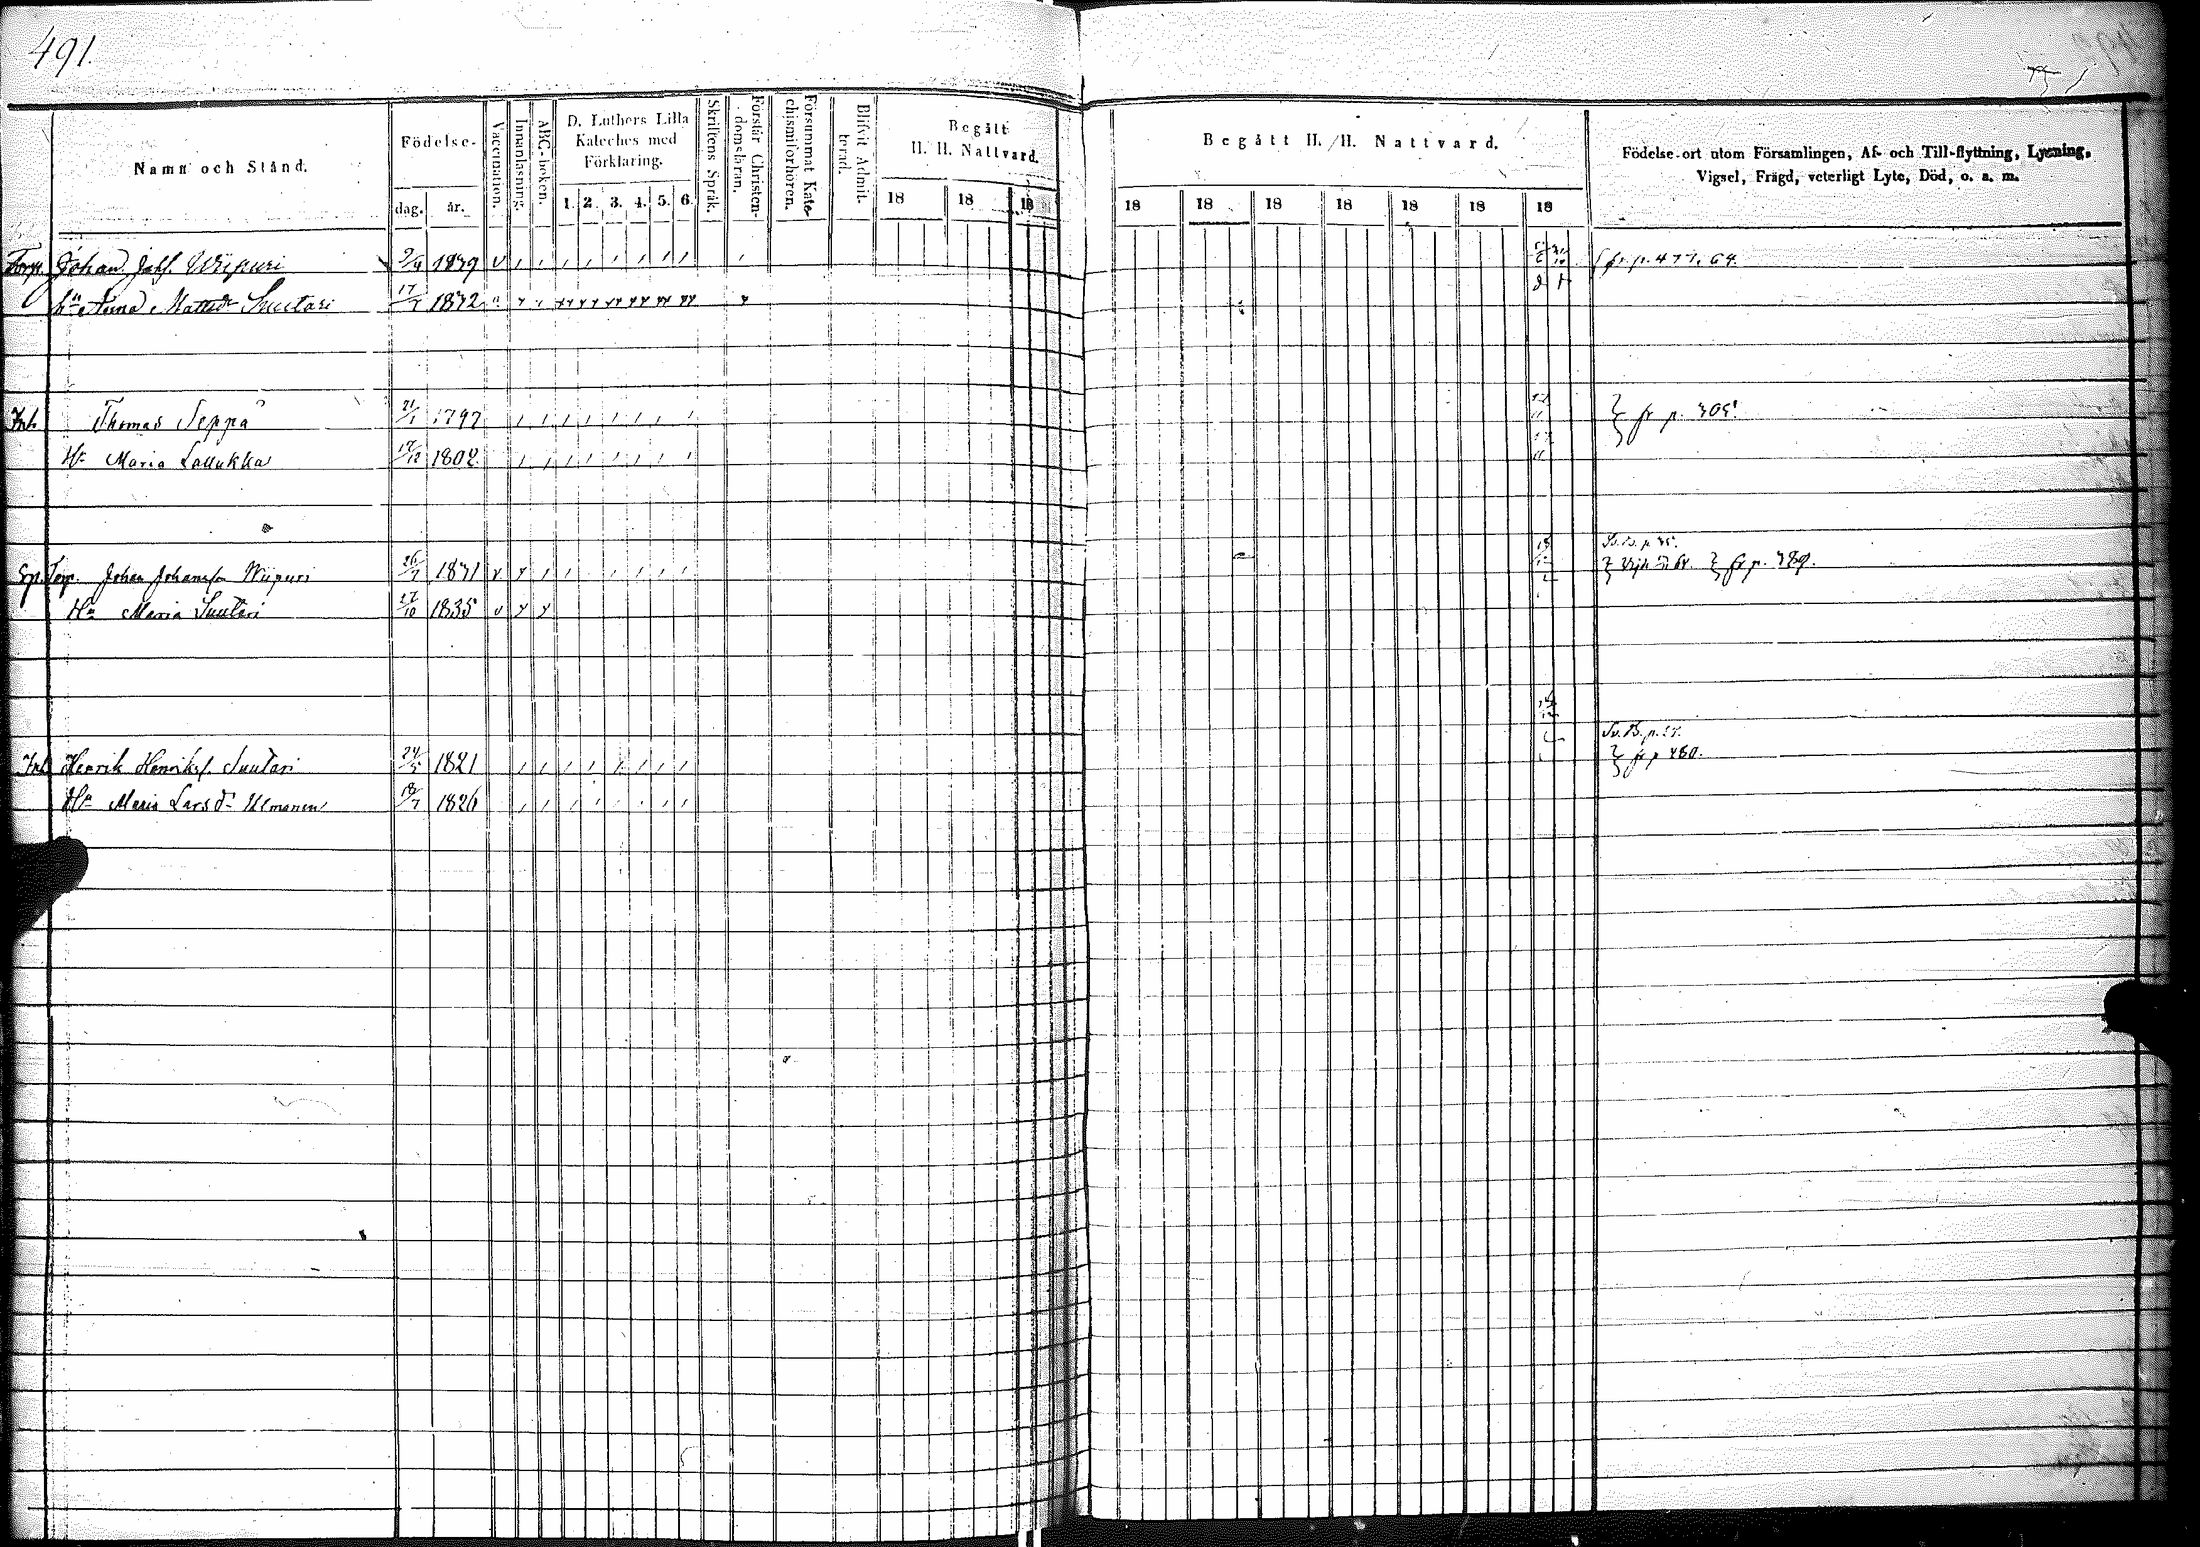 491.
Namn och Stånd.
Födelse-
dag. år.
Vaccination.
Innanläsning.
ABC-boken.
D. Luthers Lilla Kateches med Förklaring.
1. 2. 3. 4. 5. 6.
Skriftens Språk.
Förstår Christendomsläran.
Försummat Katechismiförhören.
Blifvit Admitterad.
Begått H. H. Nattvard.
18 18 18
Begått H. H. Nattvard.
18 18 18 18 18 18 18
Födelse-ort utom Församlingen, Af- och Till-flyttning, Lysning,
Vigsel, Frägd, veterligt Lyte, Död, o. s. m.
Torp. Johan Jakf. Wiipuri 9/4 1839 fr. p. 477. 64.
hu Anna Mattsdr Suutari 17/7 1832
Inh. Thomas Seppä 21/1 1797 fr p.
Hu Maria Lallukka 17/12 1802
Sp. Torp. Johan Johansson Wiipuri 26/7 1831 fr p. 489.
Hu Maria Suutari 17/10 1835
Inh Henrik Henriks. Suutari 24/5 1821 Sv. B. p. 27. fr p 480.
Hu Maria Larsdr Ulmanen 18/7 1826